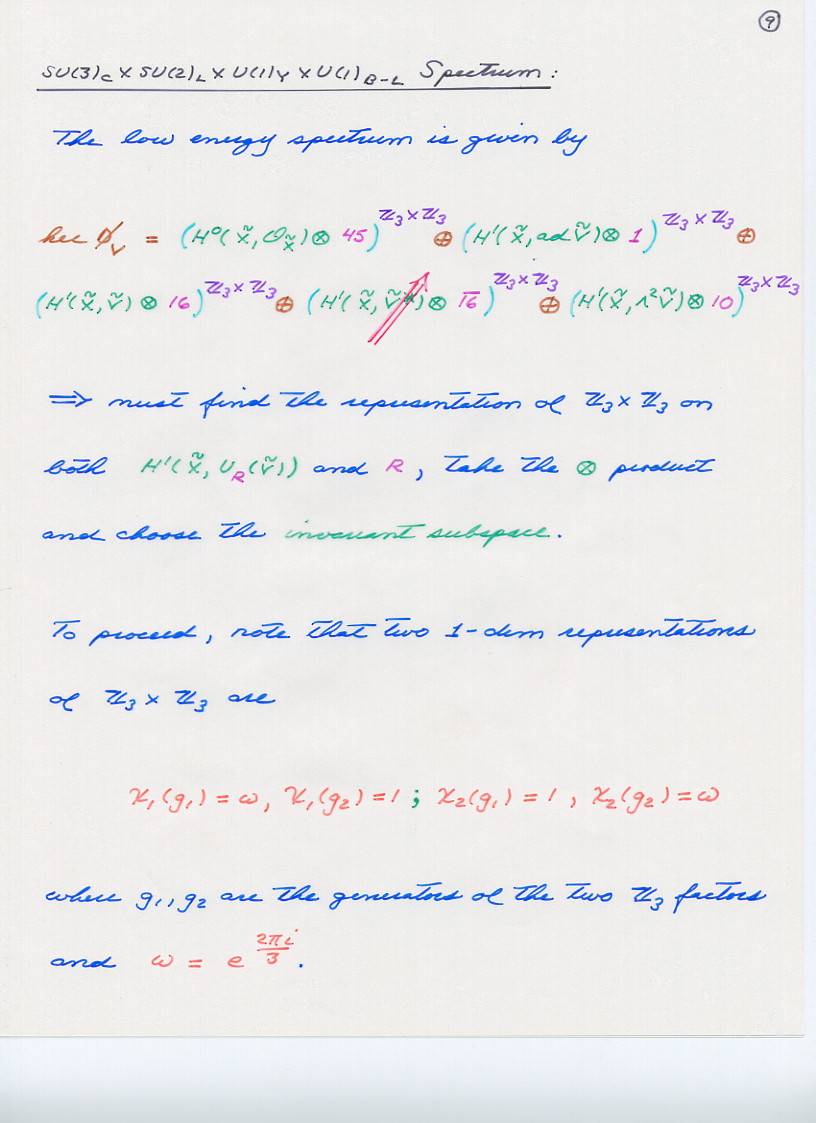 9
SU(3)_C × SU(2)_L × U(1)_Y × U(1)_{B-L} Spectrum:
The low energy spectrum is given by
ker D̸_V = (H⁰(X̃, O_X̃) ⊗ 45)^{ℤ₃×ℤ₃} ⊕ (H¹(X̃, ad Ṽ) ⊗ 1)^{ℤ₃×ℤ₃} ⊕
(H¹(X̃, Ṽ) ⊗ 16)^{ℤ₃×ℤ₃} ⊕ (H¹(X̃, Ṽ*) ⊗ 1̅6̅)^{ℤ₃×ℤ₃} ⊕ (H¹(X̃, Λ²Ṽ) ⊗ 10)^{ℤ₃×ℤ₃}
⇒ must find the representation of ℤ₃ × ℤ₃ on
both H¹(X̃, U_R(Ṽ)) and R, take the ⊗ product
and choose the invariant subspace.
To proceed, note that two 1-dim representations
of ℤ₃ × ℤ₃ are
χ₁(g₁) = ω, χ₁(g₂) = 1 ; χ₂(g₁) = 1, χ₂(g₂) = ω
where g₁, g₂ are the generators of the two ℤ₃ factors
and ω = e^{2πi/3}.